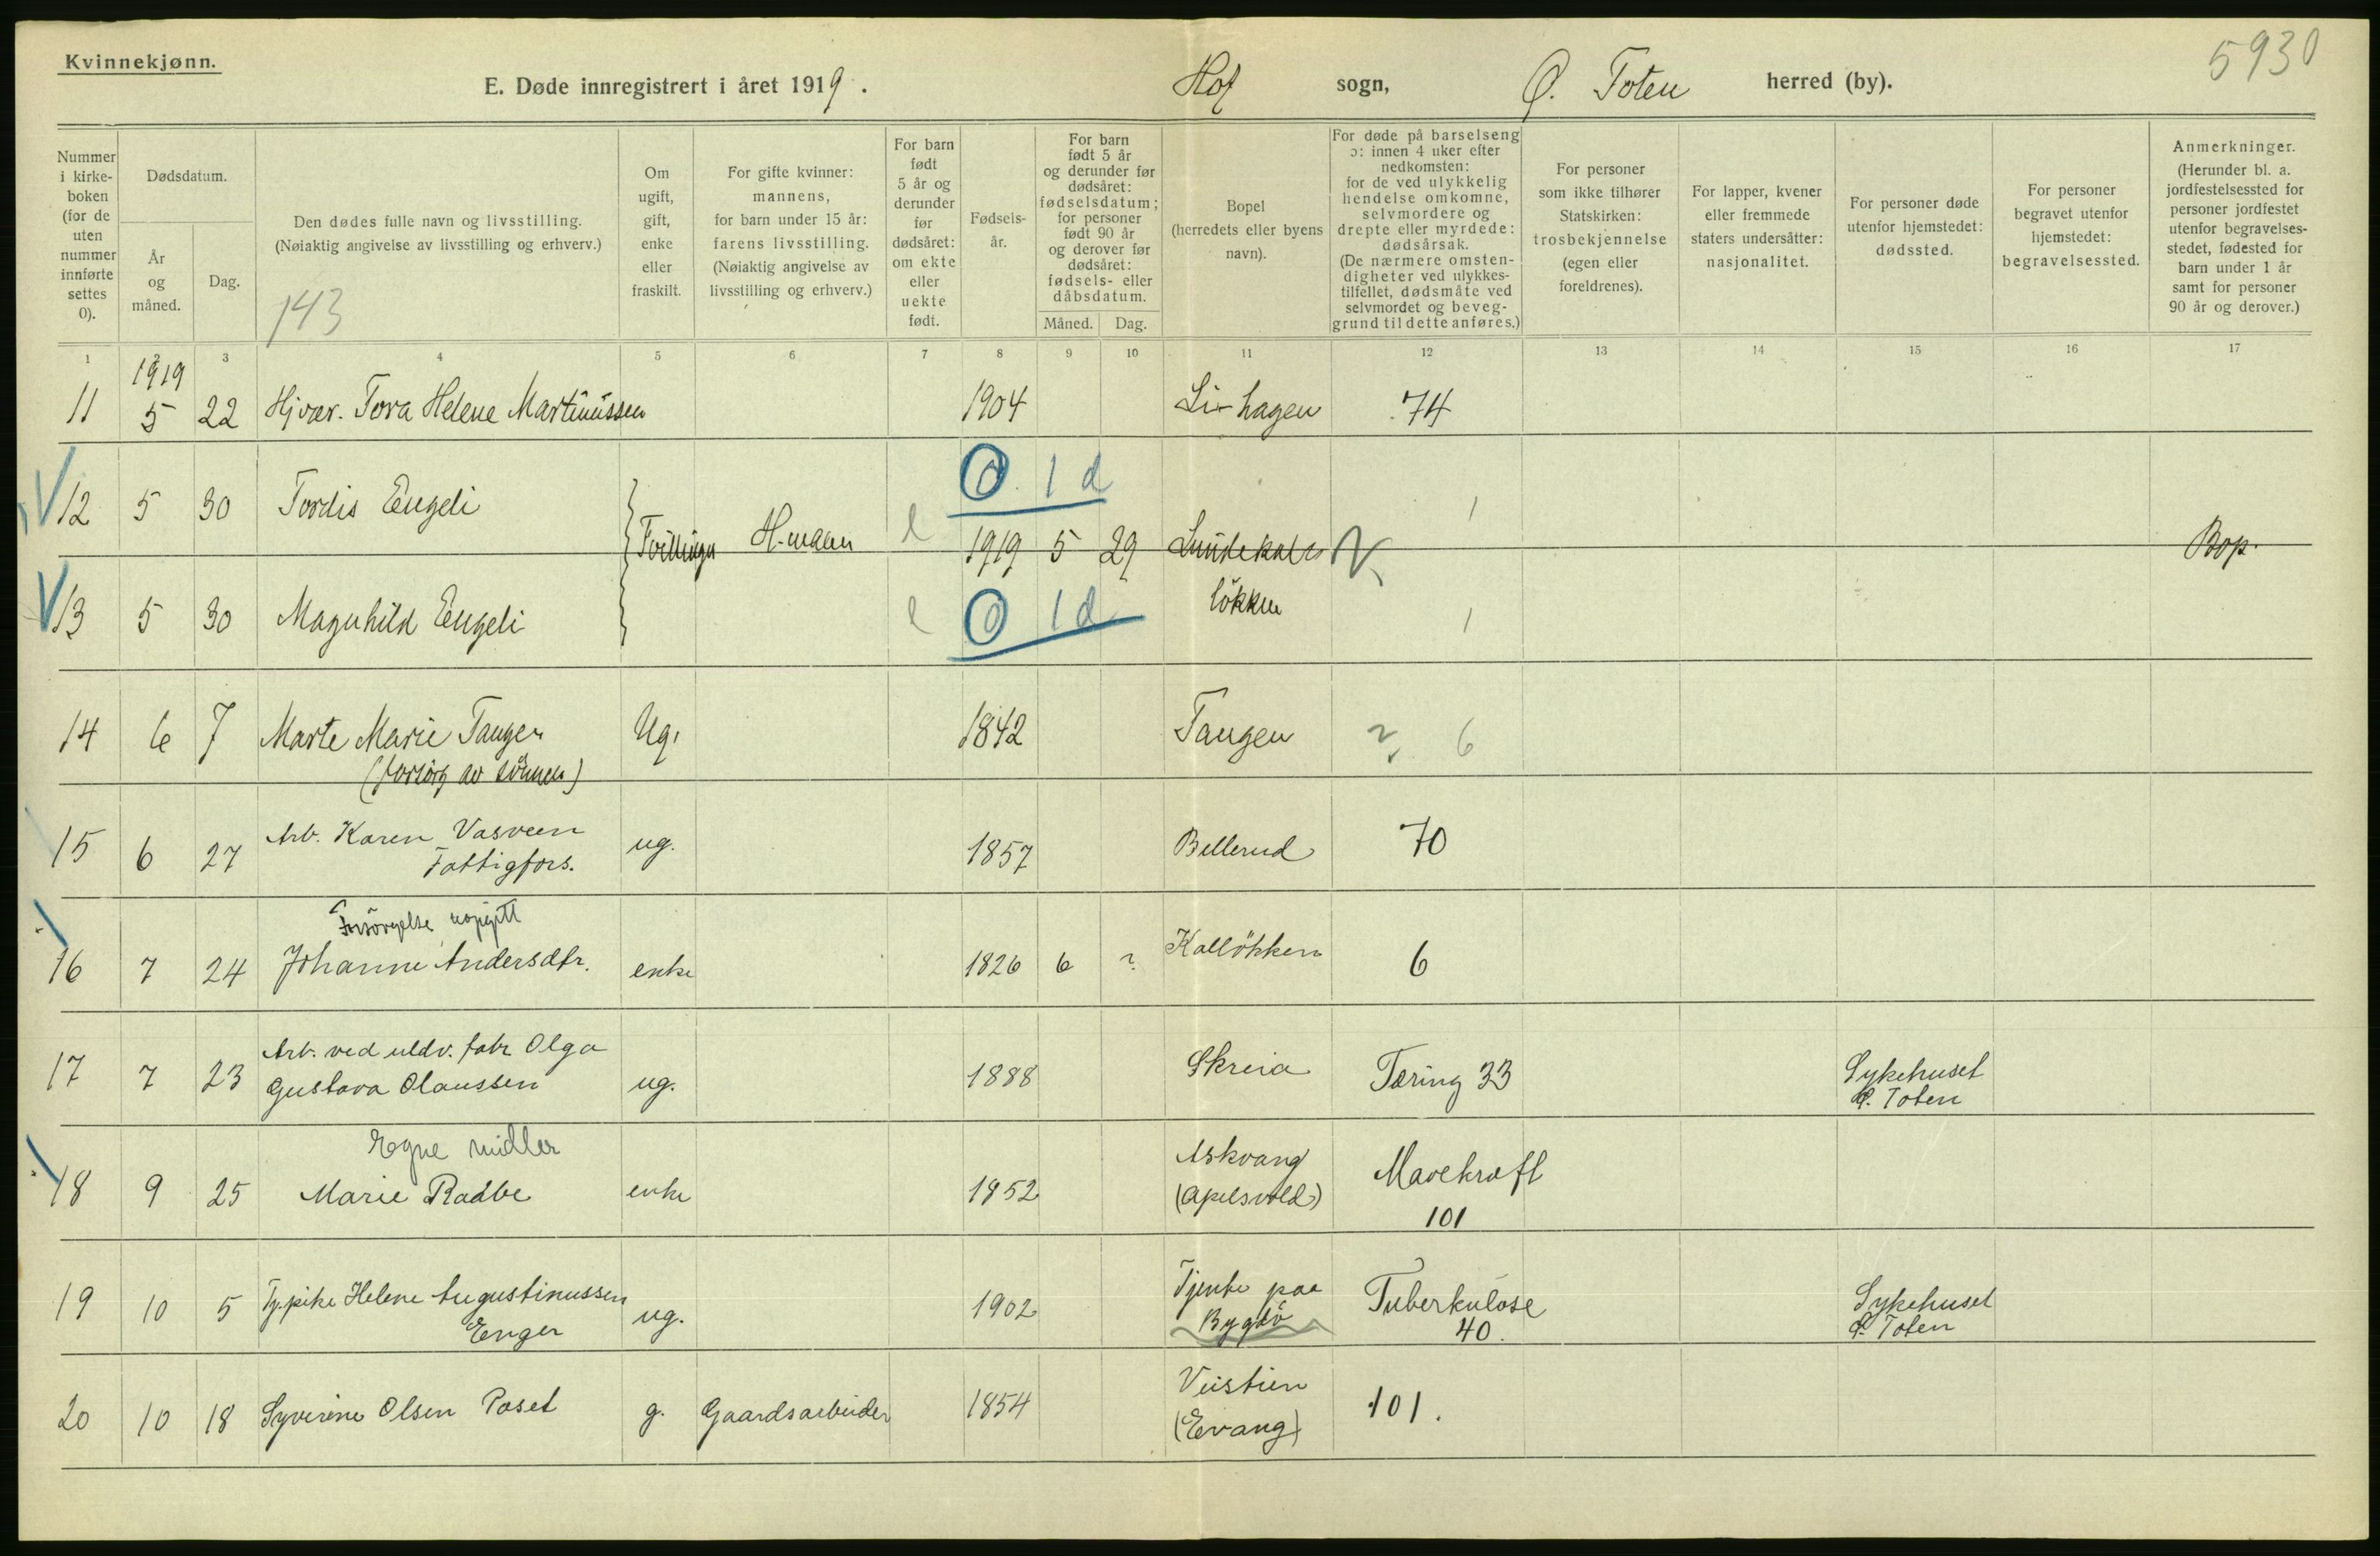 Kvinnekjønn.
5930
E. Døde innregistrert i året 1919. Hof sogn, Ø. Toten herred (by).
Nummer i kirke-boken (for de uten nummer innførte settes 0).
Dødsdatum.
År og måned.
Dag.
Den dødes fulle navn og livsstilling.
(Nøiaktig angivelse av livsstilling og erhverv.)
143
Om ugift, gift, enke eller fraskilt.
For gifte kvinner: mannens, for barn under 15 år: farens livsstilling. (Nøiaktig angivelse av livsstilling og erhverv.)
For barn født 5 år og derunder før dødsåret: om ekte eller uekte født.
Fødsels-år.
For barn født 5 år og derunder før dødsåret: fødselsdatum; for personer født 90 år og derover før dødsåret: fødsels- eller dåbsdatum.
Måned. Dag.
Bopel (herredets eller byens navn).
For døde på barselseng ɔ: innen 4 uker efter nedkomsten: for de ved ulykkelig hendelse omkomne, selvmordere og drepte eller myrdede: dødsårsak. (De nærmere omsten-digheter ved ulykkes-tilfellet, dødsmåte ved selvmordet og beveg-grund til dette anføres.)
For personer som ikke tilhører Statskirken: trosbekjennelse (egen eller foreldrenes).
For lapper, kvener eller fremmede staters undersåtter: nasjonalitet.
For personer døde utenfor hjemstedet: dødssted.
For personer begravet utenfor hjemstedet: begravelsessted.
Anmerkninger. (Herunder bl. a. jordfestelsessted for personer jordfestet utenfor begravelses-stedet, fødested for barn under 1 år samt for personer 90 år og derover.)
1 2 3 4 5 6 7 8 9 10 11 12 13 14 15 16 17
1919
11 5 22 Hj.vær. Tora Helene Martinussen 1904 Li-hagen 74
0 1 d
12 5 30 Tordis Engeli 1
Tvillinger H.mann e 1919 5 29 Lundekals N Bop.
løkken
13 5 30 Magnhild Engeli e 0 1 d 1
14 6 7 Marte Marie Tangen Ug. 1842 Tangen ? 6
(forsørg av sønnen)
15 6 27 Arb. Karen Vasveen ug. 1857 Bellerud 70
Fattigfors.
Forsørgelse uopgitt
16 7 24 Johanne Andersdtr. enke 1826 6 ? Kalløkken 6
17 7 23 Arb. ved uldv. fabr. Olga
Gustava Olaussen ug. 1888 Skreia Tæring 33 Sykehuset
Ø. Toten
Egne midler
18 9 25 Marie Radbe enke 1852 Askvang
(Apelsvold) Mavekræft
101
19 10 5 Tj.pike Helene Augustinussen
Enger ug. 1902 Tjente paa
Bygdø Tuberkulose
40. Sykehuset
Ø. Toten
20 10 18 Syverine Olsen Poset g. Gaardsarbeider 1854 Veistien
(Evang) 101.